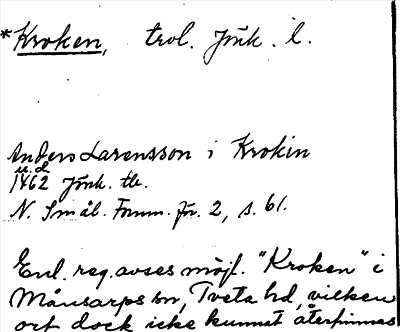 *Kroken, trol. Jönk. l.
Anders Larensson i Krokin
u. d.
1462 Jönk. tb.
N. Smål. Fornm. för. 2, s. 61.
Enl. reg. avses möjl. "Kroken" i
Månsarps sn, Tveta hd, vilken
ort dock icke kunnat återfinnas